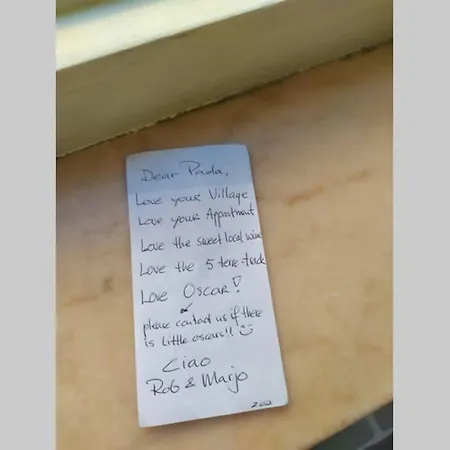 Dear Pada,
Love your Village
Love your Appartment
Love the sweet local wine
Love the 5 terre-track
Love Oscar!
please contact us if there
is little oscars!!
Ciao
Rob & Marjo